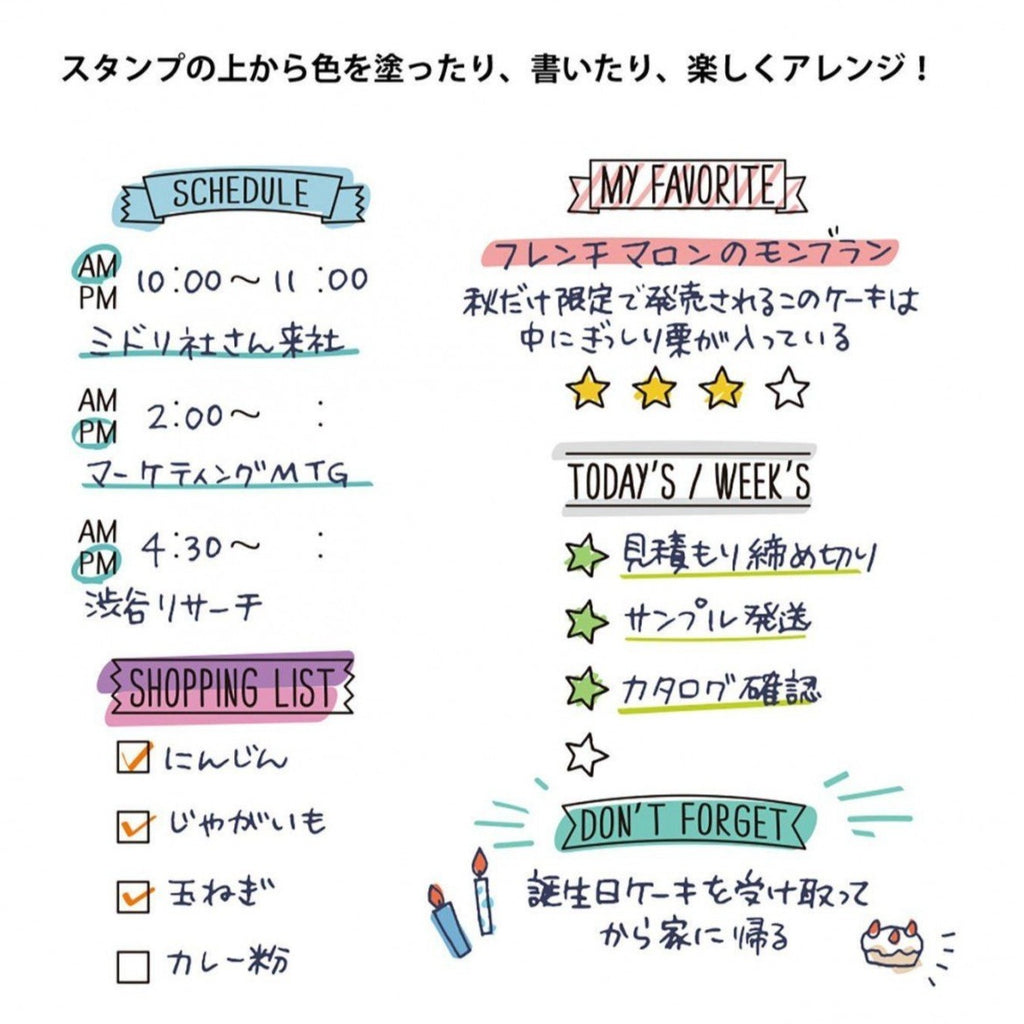 スタンプの上から色を塗ったり、書いたり、楽しくアレンジ！
SCHEDULE
AM
PM
10:00～11:00
ミドリ社さん来社
AM
PM
2:00～ :
マーケティングMTG
AM
PM
4:30～ :
渋谷リサーチ
SHOPPING LIST
にんじん
じゃがいも
玉ねぎ
カレー粉
MY FAVORITE
フレンチマロンのモンブラン
秋だけ限定で発売されるこのケーキは
中にぎっしり栗が入っている
TODAY'S / WEEK'S
見積もり締め切り
サンプル発送
カタログ確認
DON'T FORGET
誕生日ケーキを受け取って
から家に帰る